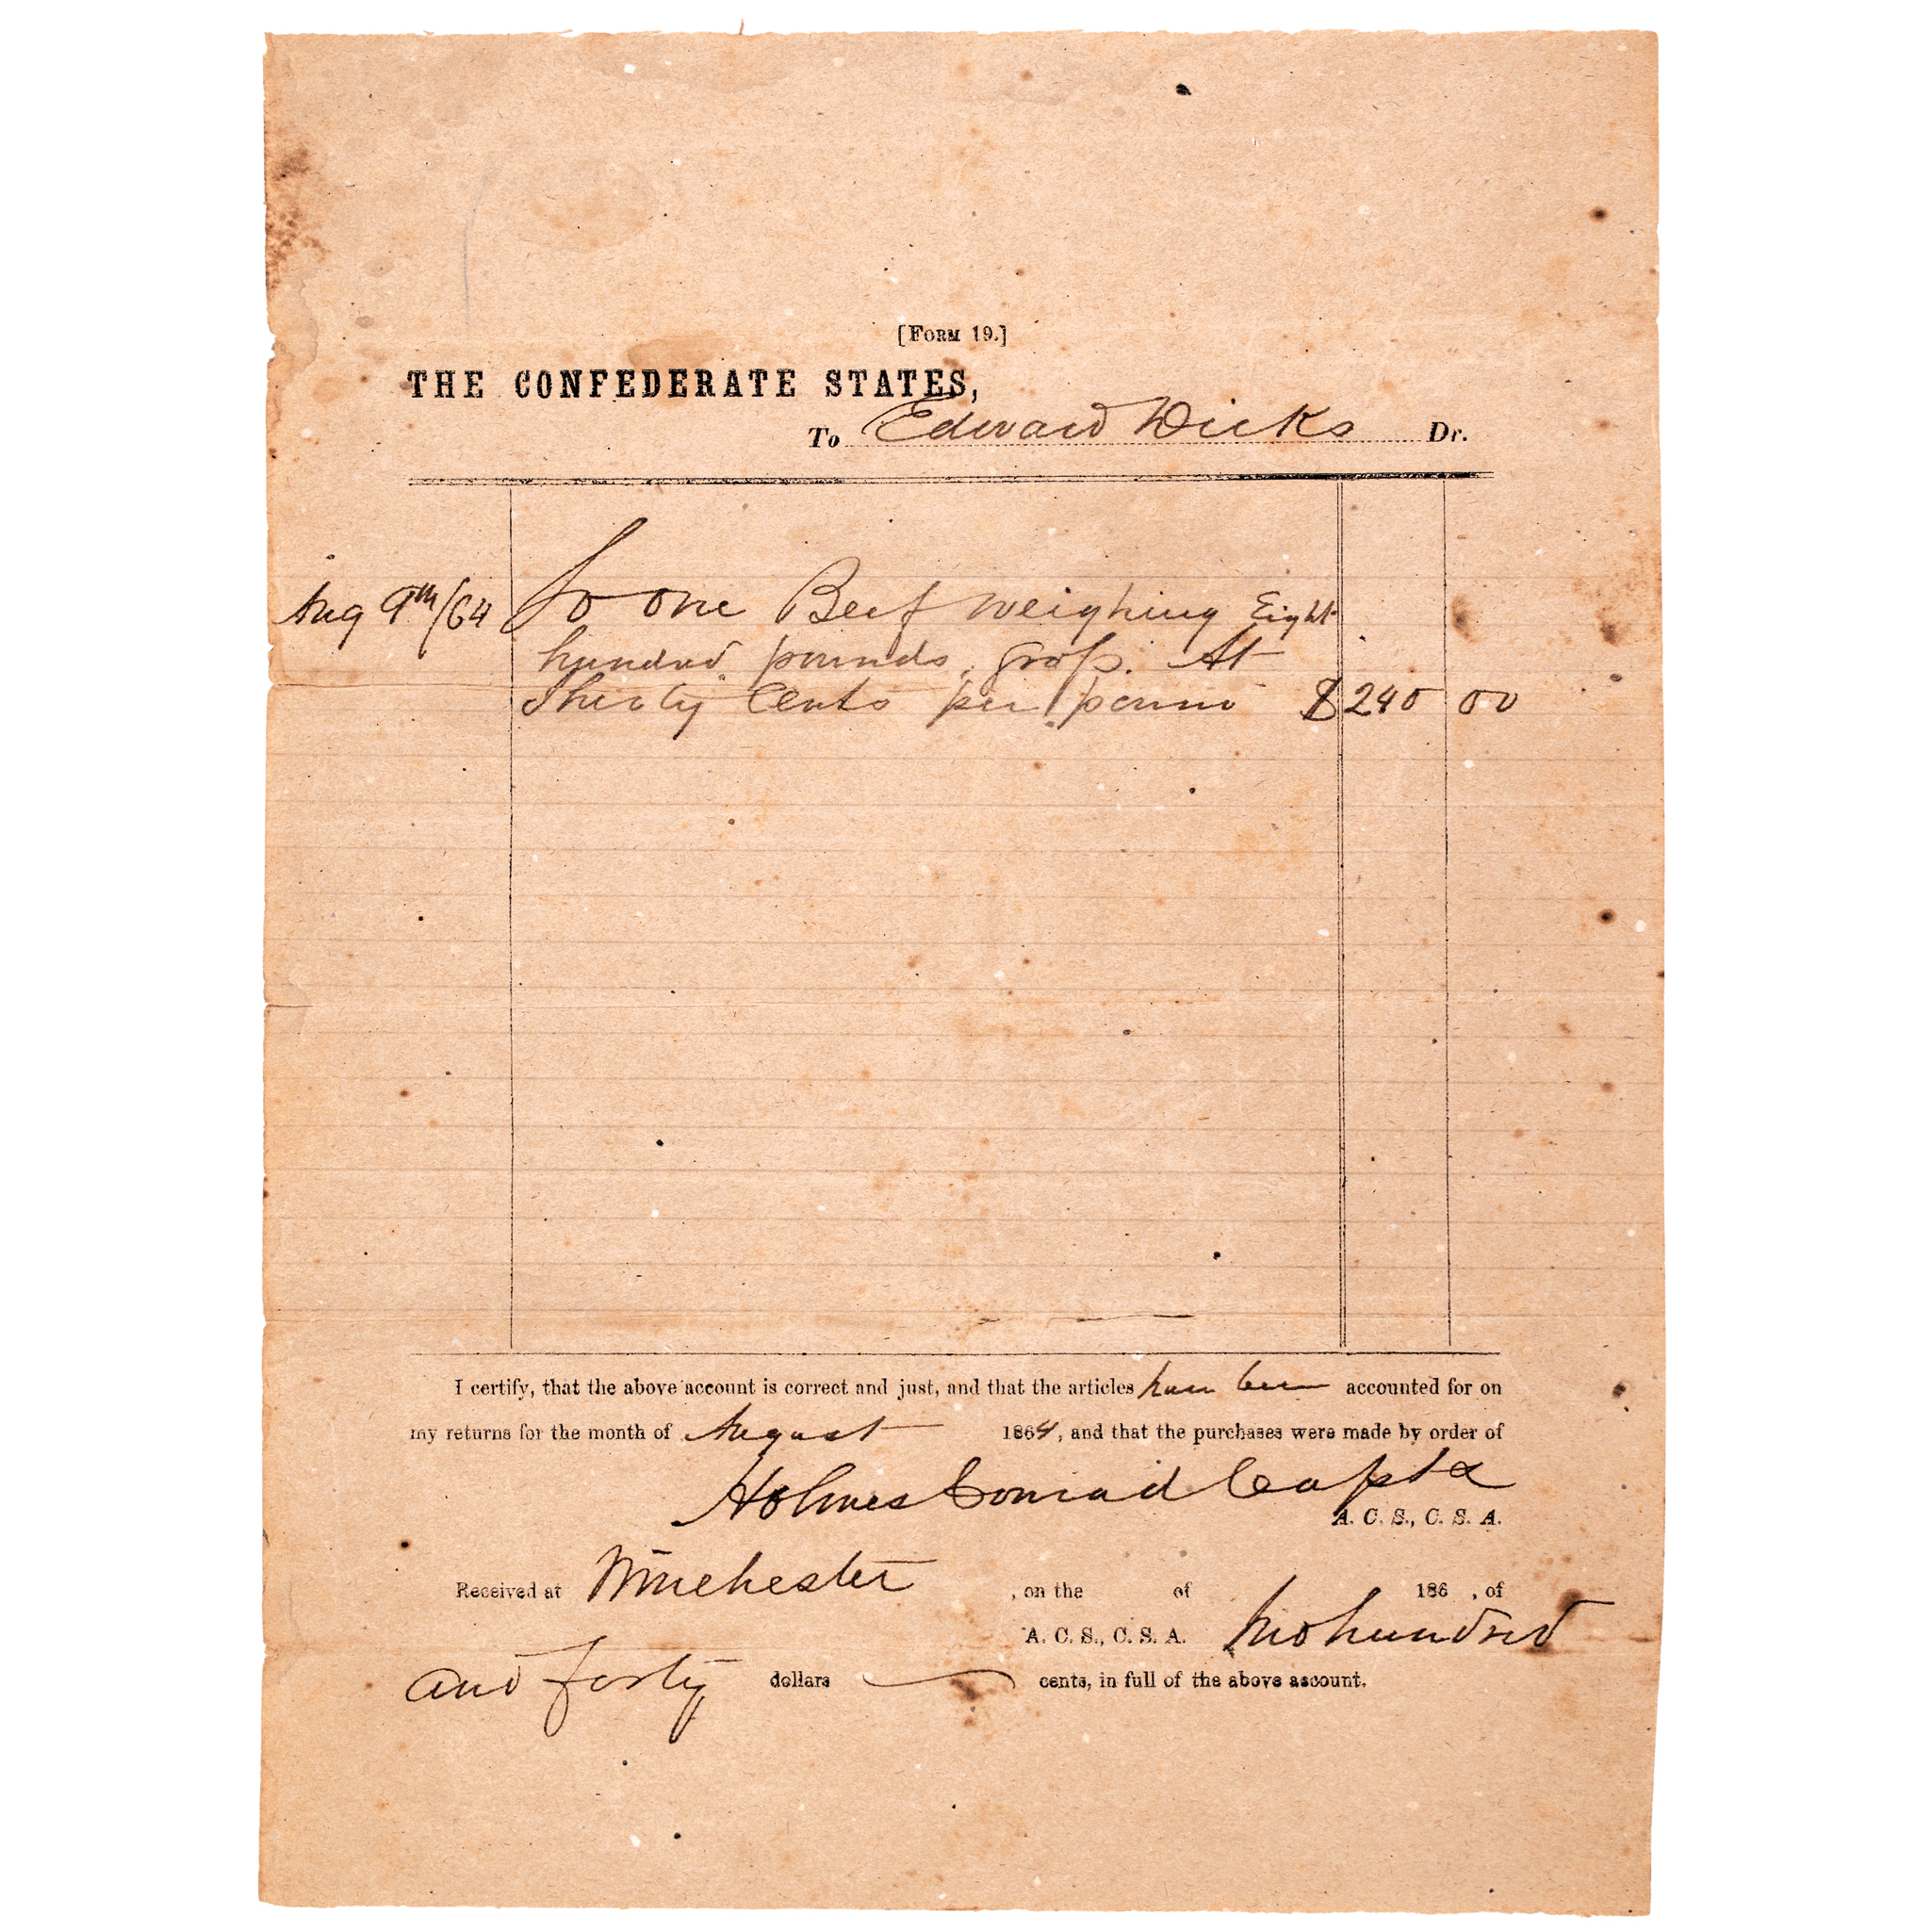 [FORM 19.]
THE CONFEDERATE STATES,
To Edward Dicks Dr.
Aug 9th/64 To one Beef weighing Eight
hundred pounds, gross. At
Thirty Cents per pound $240 00
I certify, that the above account is correct and just, and that the articles have been accounted for on
my returns for the month of August 1864, and that the purchases were made by order of
Holmes Conrad Capt &
A. C. S., C. S. A.
Received at Winchester , on the of 186 , of
A. C. S., C. S. A. Two hundred
and forty dollars cents, in full of the above account.